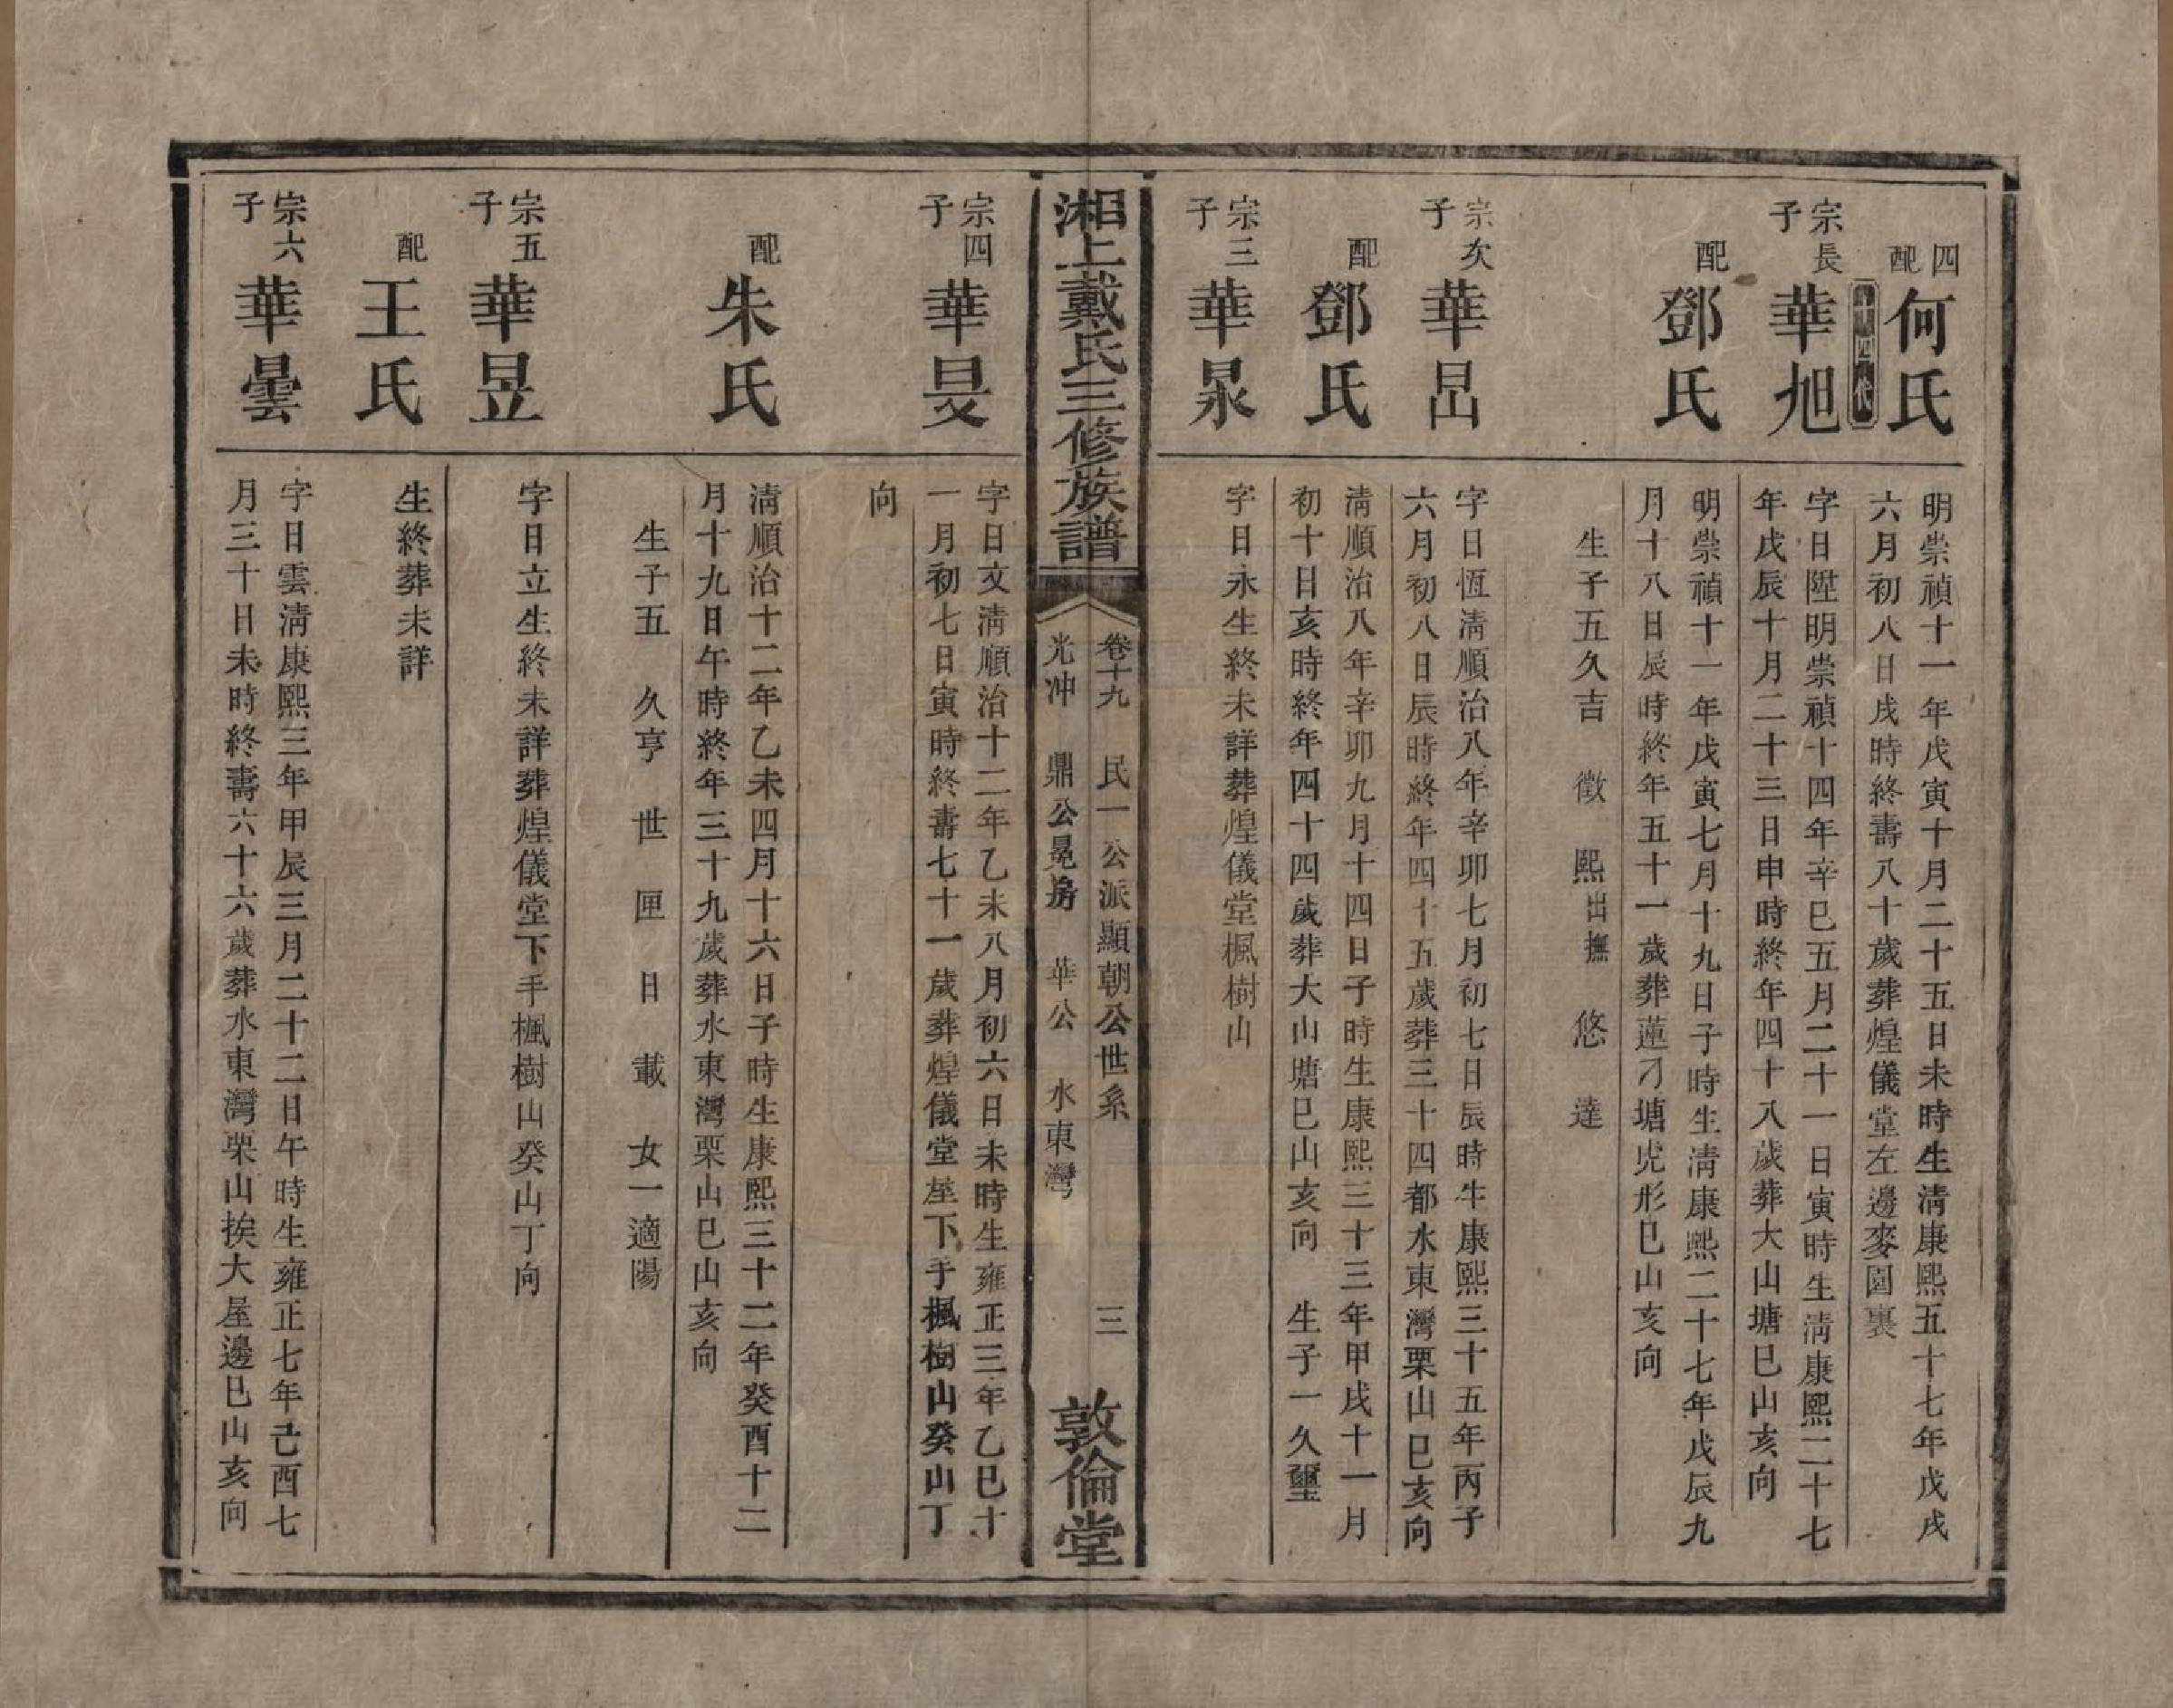 四配 何氏
明崇禎十一年戊寅十月二十五日未時生清康熙五十七年戊戌
六月初八日戌時終壽八十歲葬煌儀堂左邊麥園裏
十四代
宗長子 華旭
字日陞明崇禎十四年辛巳五月二十一日寅時生清康熙二十七
年戊辰十月二十三日申時終年四十八歲葬大山塘巳山亥向
配 鄧氏
明崇禎十一年戊寅七月十九日子時生清康熙二十七年戊辰九
月十八日辰時終年五十一歲葬蓮刁塘虎形巳山亥向
生子五久吉 徵 熙出撫 悠 達
宗次子 華昌
字日恆清順治八年辛卯七月初七日辰時生康熙三十五年丙子
六月初八日辰時終年四十五歲葬三十四都水東灣栗山巳亥向
配 鄧氏
清順治八年辛卯九月十四日子時生康熙三十三年甲戌十一月
初十日亥時終年四十四歲葬大山塘巳山亥向 生子一久璽
宗三子 華泉
字日永生終未詳葬煌儀堂楓樹山
湘上戴氏三修族譜
卷十九 民一公派顯朝公世系 三
光沖 鼎公晃房 華公 水東灣
敦倫堂
宗四子 華旻
字日文清順治十二年乙未八月初六日未時生雍正三年乙巳十
一月初七日寅時終壽七十一歲葬煌儀堂屋下手楓樹山癸山丁
向
配 朱氏
清順治十二年乙未四月十六日子時生康熙三十二年癸酉十二
月十九日午時終年三十九歲葬水東灣栗山巳山亥向
生子五 久亨 世 匣 日 載 女一適陽
宗五子 華昱
字日立生終未詳葬煌儀堂下手楓樹山癸山丁向
配 王氏
生終葬未詳
宗六子 華曇
字日雲清康熙三年甲辰三月二十二日午時生雍正七年己酉七
月三十日未時終壽六十六歲葬水東灣栗山挨大屋邊巳山亥向